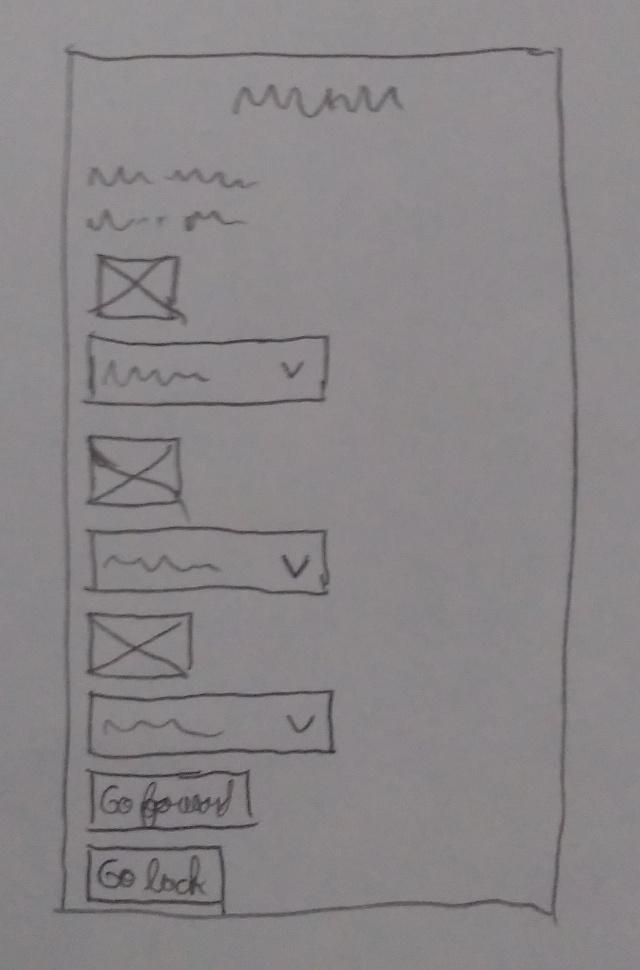 Go forward
Go back